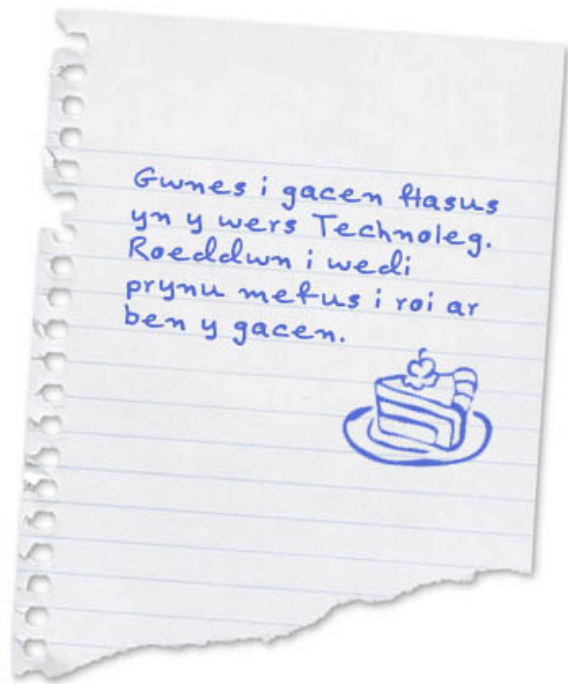 Gwnes i gacen flasus
yn y wers Technoleg.
Roeddwn i wedi
prynu mefus i roi ar
ben y gacen.